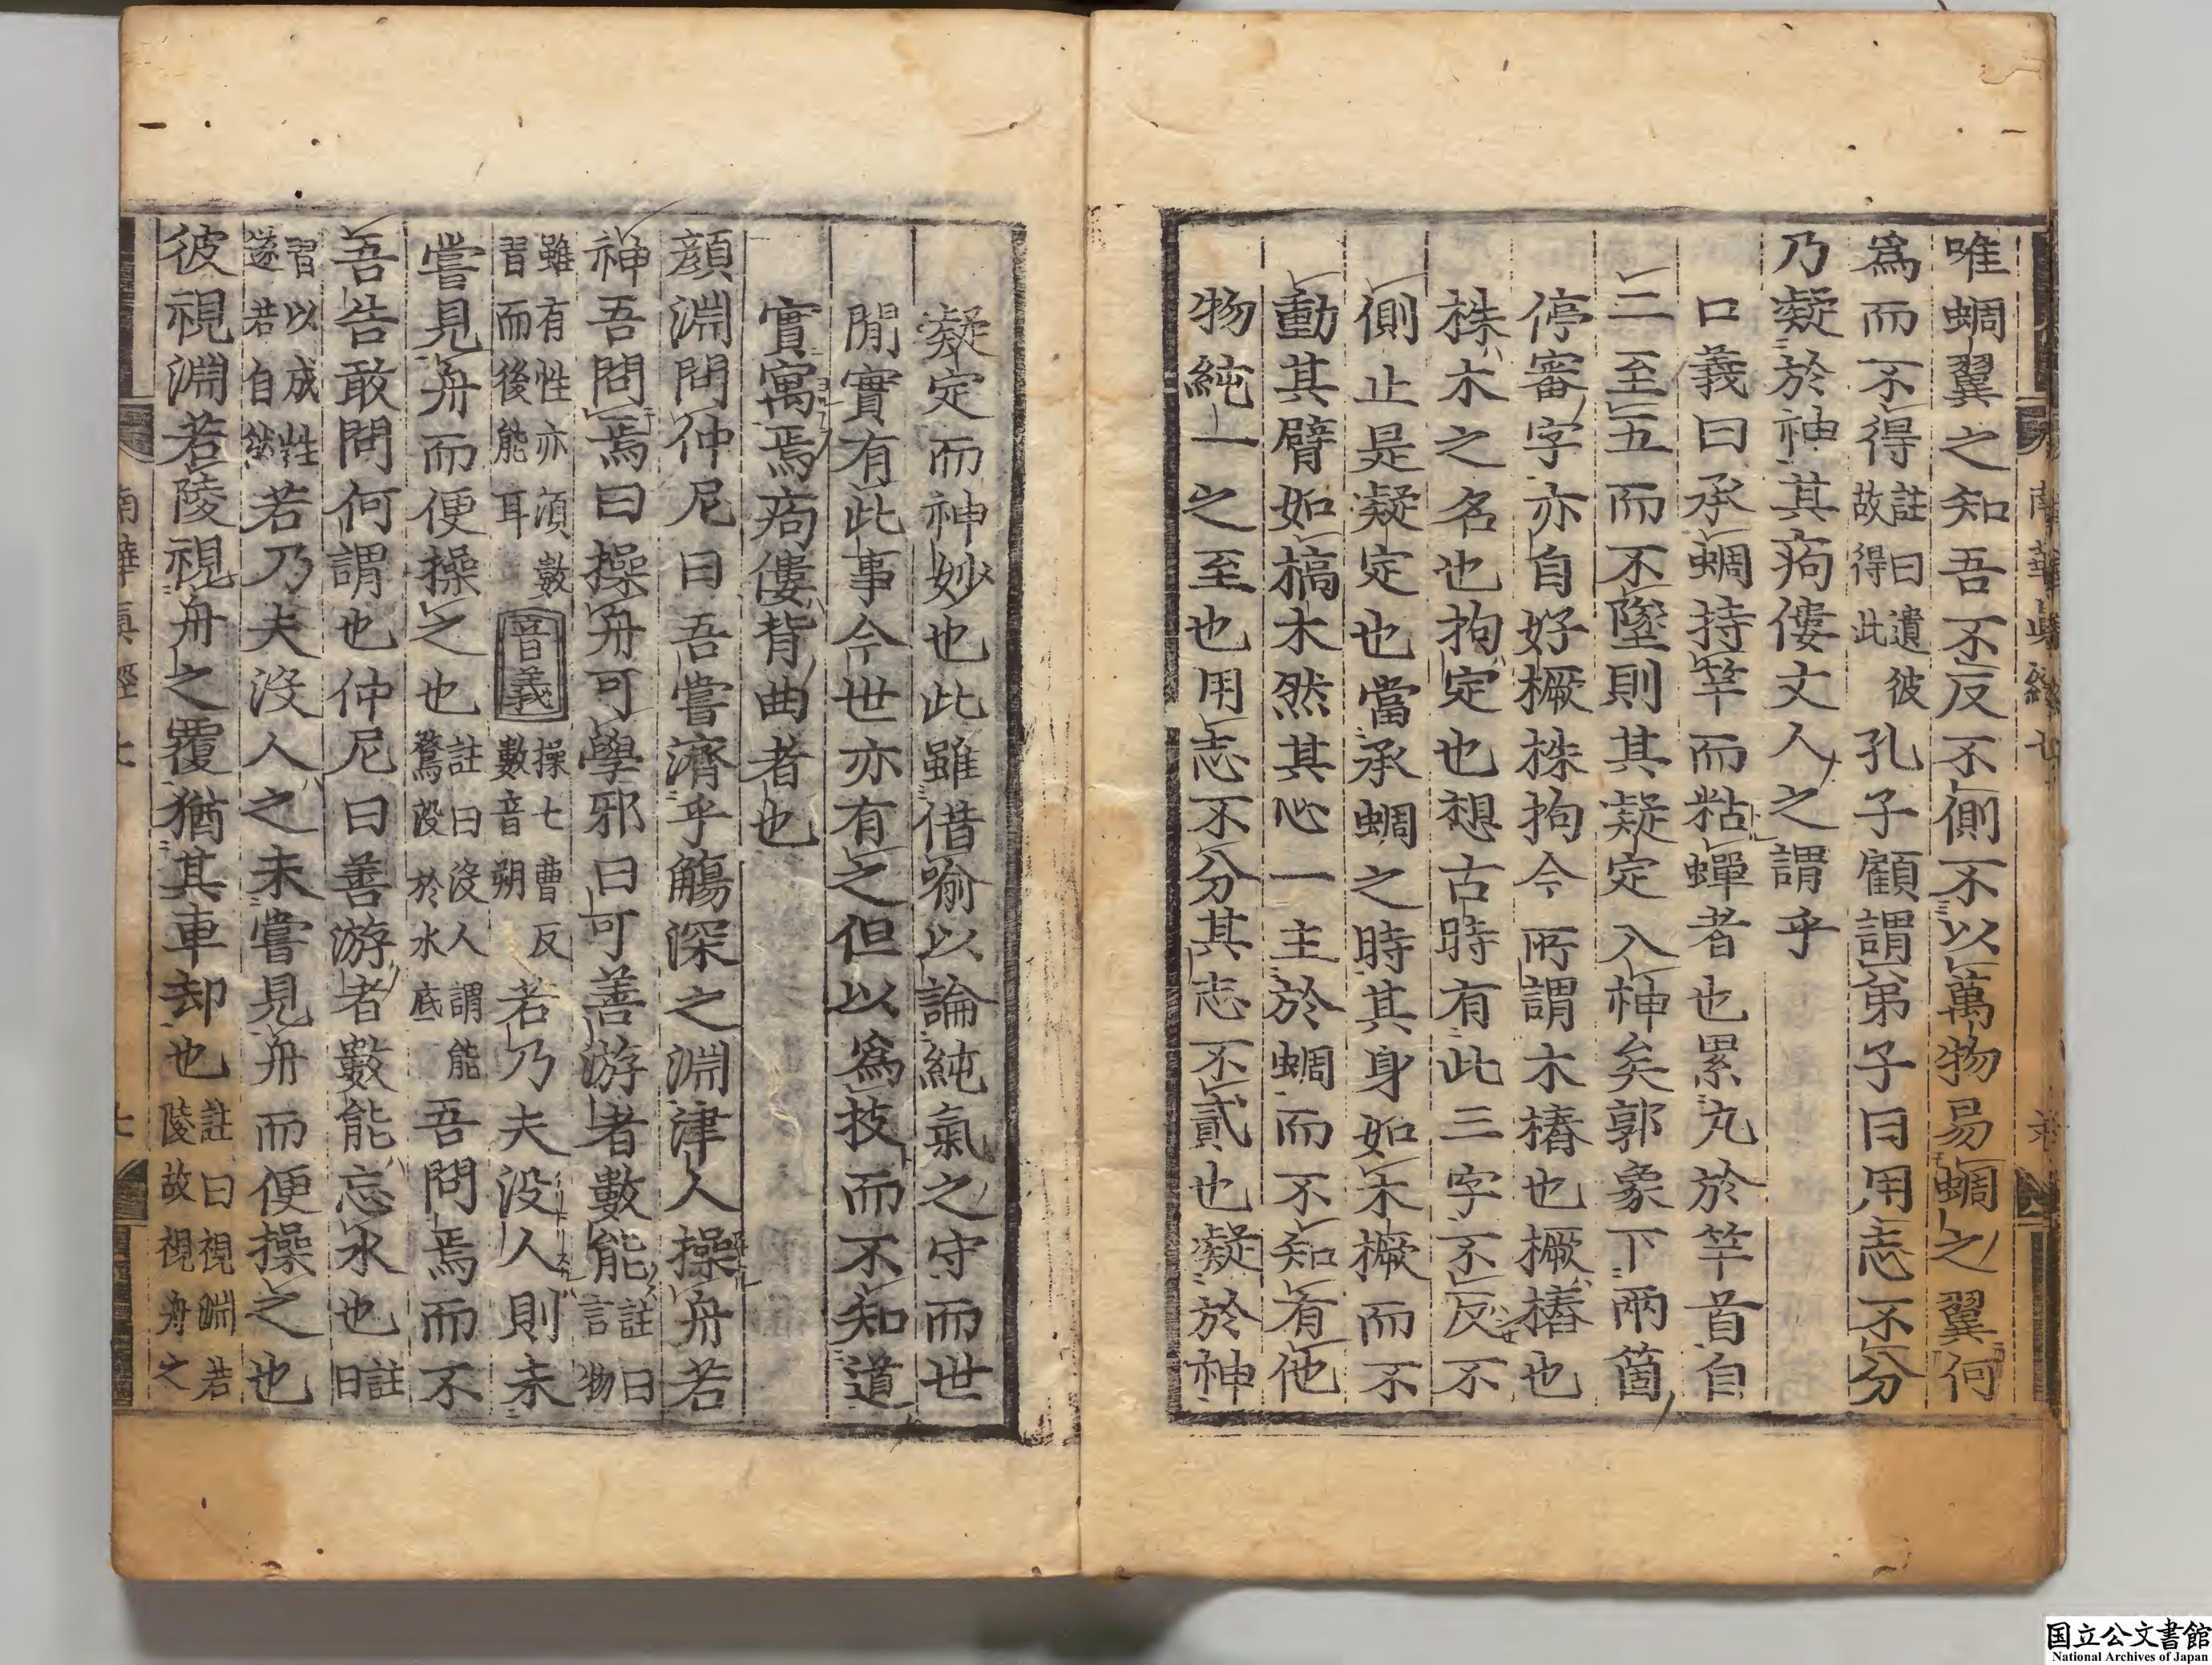 唯蜩翼之知吾不反不側不以萬物易蜩之翼何
爲而不得註曰遺彼故得此孔子顧謂弟子曰用志不分
乃凝於神其痀僂丈人之謂乎
口義曰承蜩持竿而粘蟬者也累丸於竿首自
二至五而不墜則其凝定入神矣郭象下兩箇
停審字亦自好橛株拘今所謂木樁也橛樁也
株木之名也拘定也想古時有此三字不反不
側止是凝定也當承蜩之時其身如木橛而不
動其臂如槁木然其心一主於蜩而不知有他
物純一之至也用志不分其志不貳也凝於神
凝定而神妙也此雖借喻以論純氣之守而世
間實有此事今世亦有之但以爲技而不知道
實寓焉痀僂背曲者也
顏淵問仲尼曰吾嘗濟乎觴深之淵津人操舟若
神吾問焉曰操舟可學邪曰可善游者數能註曰言物
雖有性亦須數習而後能耳音義操七曹反數音朔若乃夫没人則未
嘗見舟而便操之也註曰没人謂能鶩没於水底吾問焉而不
吾告敢問何謂也仲尼曰善游者數能忘水也註曰
習以成性遂若自然若乃夫没人之未嘗見舟而便操之也
彼視淵若陵視舟之覆猶其車却也註曰視淵若陵故視舟之
南華眞經七
国立公文書館
National Archives of Japan